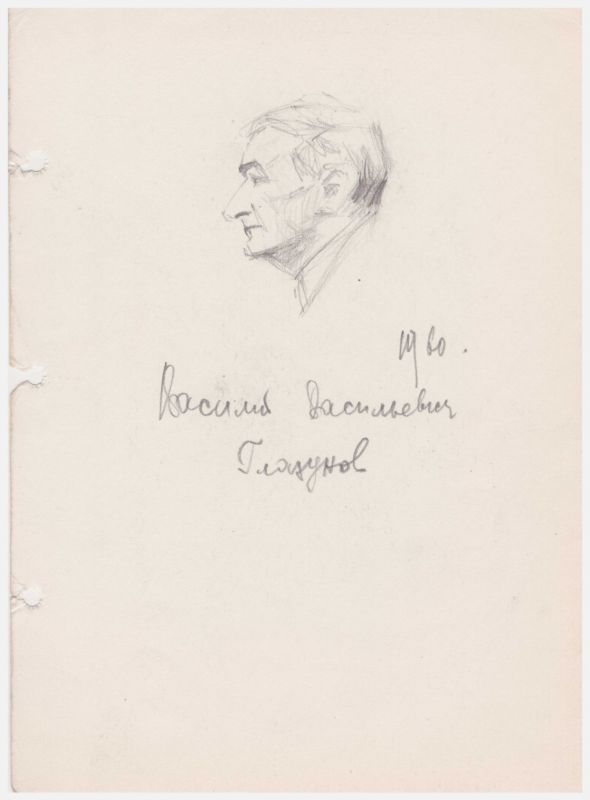 1960.
Василий Васильевич
Глазунов